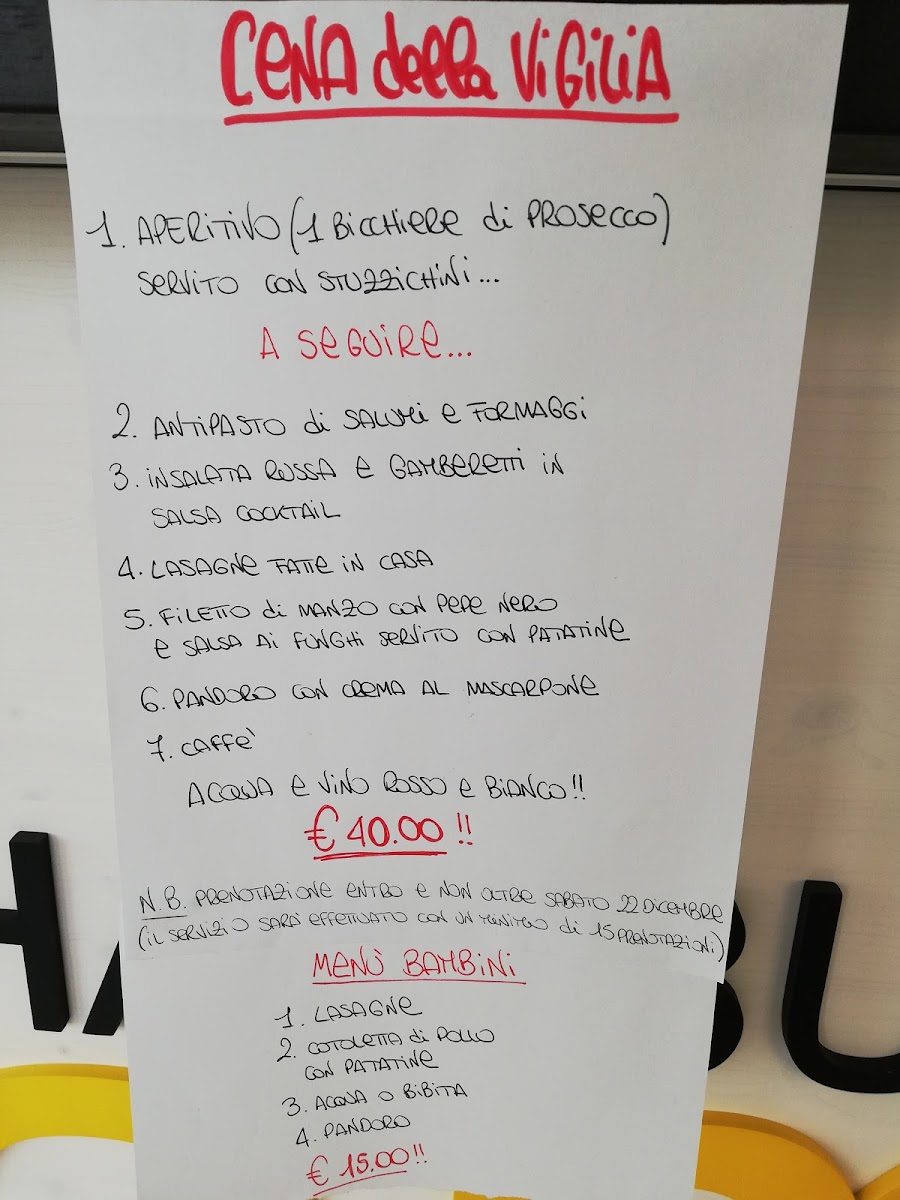 CENA della ViGiLiA
1. APERITIVO (1 BICCHIERE di PROSECCO)
SERVITO CON STUZZICHINI...
A SEGUIRE...
2. ANTIPASTO di SALUMI E FORMAGGI
3. INSALATA RUSSA E GAMBERETTI IN
SALSA COCKTAIL
4. LASAGNE FATTE IN CASA
5. FILETTO di MANZO CON PEPE NERO
E SALSA Ai FUNGHI SERVITO CON PATATINE
6. PANDORO CON CREMA AL MASCARPONE
7. CAFFE'
ACQUA E VINO ROSSO E BIANCO!!
€ 40.00!!
N.B. PRENOTAZIONE ENTRO E NON OLTRE SABATO 22 DICEMBRE
(IL SERVIZIO SARA' EFFETTUATO CON UN MINIMO di 15 PRENOTAZIONI)
MENÙ BAMBINI
1. LASAGNE
2. COTOLETTA di POLLO
CON PATATINE
3. ACQUA O BIBITA
4. PANDORO
€ 15.00!!